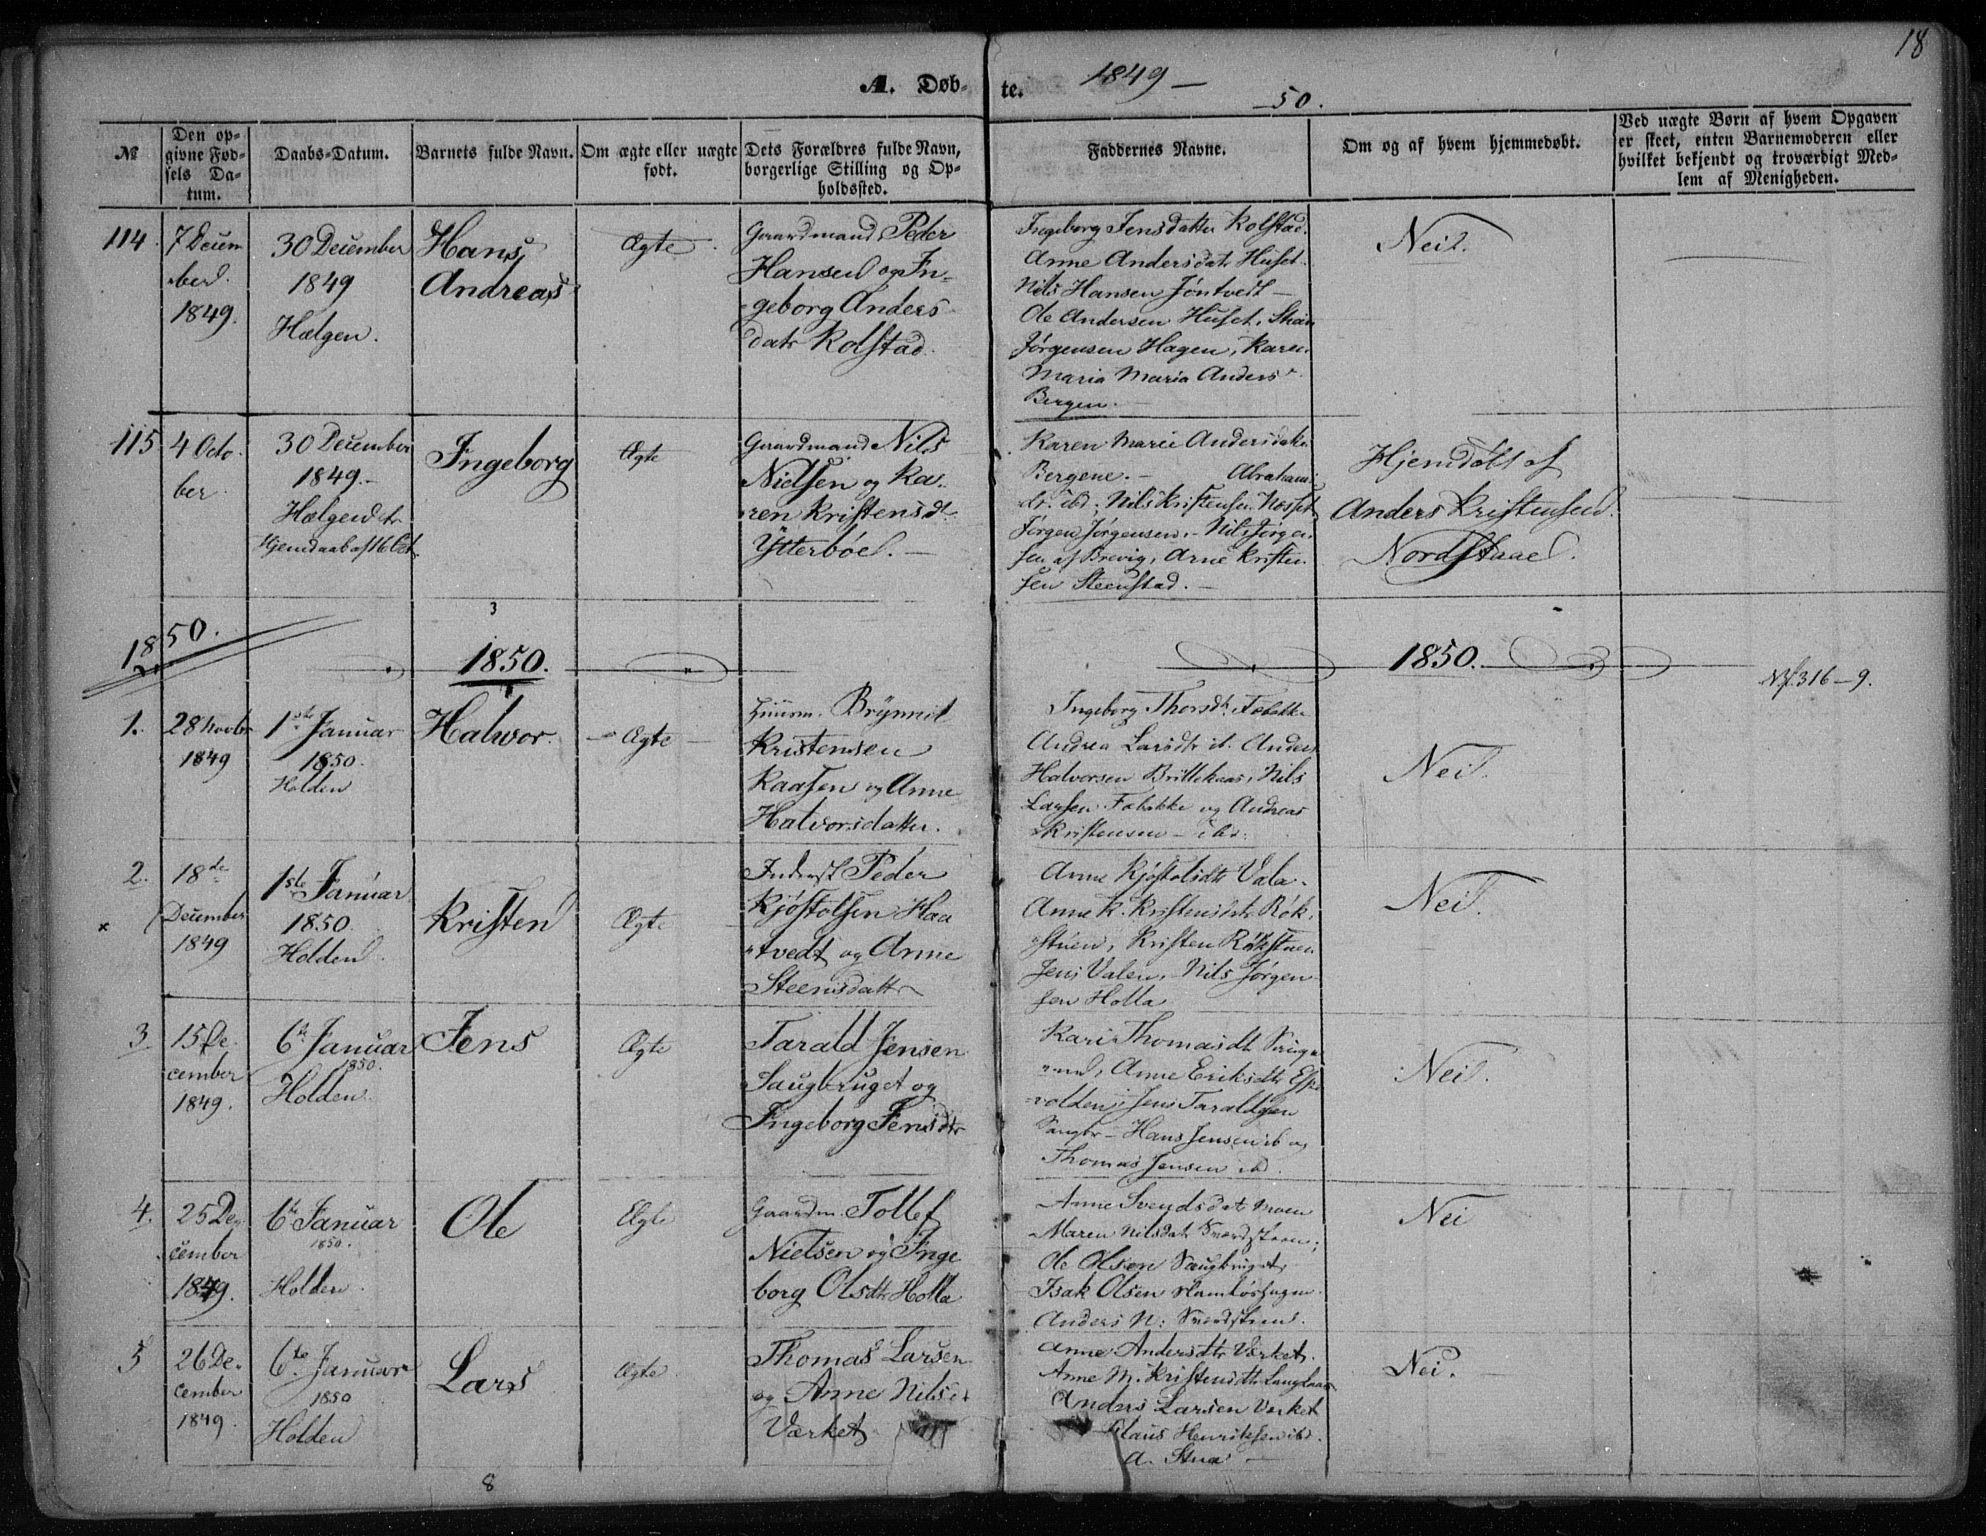 18
A. Døb-
te.
1849 —
—50.
№
Den op-
givne Fød-
sels Da-
tum.
Daabs-Datum.
Barnets fulde Navn.
Om ægte eller uægte
født.
Dets Forældres fulde Navn,
borgerlige Stilling og Op-
holdssted.
Faddernes Navne.
Om og af hvem hjemmedøbt.
Ved uægte Børn af hvem Opgaven
er skeet, enten Barnemoderen eller
hvilket bekjendt og troværdigt Med-
lem af Menigheden.
114.
7 Decem
ber.
1849.
30 December
1849
Hælgen.
Hans
Andreas
Ægte.
Gaardmand Peder
Hansen og In-
geborg Anders
datr Kolstad.
Ingeborg Jensdatter Kolstad.
Anne Andersdatr Huset.
Nils Hansen Jøntvedt —
Ole Andersen Huset,
Jørgensen Hagen, Karen
Maria Maria Anders
Bergen.
Nei.
115.
4 Octo
ber.
30 December
1849.—
Hælgen
Hjemdaab af 16 Oct.
Ingeborg
Ægte
Gaardmand Nils
Nielsen og Ka-
ren Kristensdt
Ytterböe. —
Karen Marie Andersdatr
Bergene. — Abraham
dr. ibd. Nils Kristensen Næsset
Jørgen Jørgensen. — Nils Jørgen
sen af Brevig, Arne Kristen
sen Steenstad. —
Hjemdøbt af
Anders Kristensen
Nordstaae.
3
1850.
1850.
1850.
Nf. 316—9.
1.
28 Novbr
1849
1ste Januar
1850.
Holden
Halvor.
Ægte
Huusm. Brynnil
Kristensen
Kaasen og Anne
Halvorsdatter.
Ingeborg Thorsdtr.
Andrea Larsdtr ib. Anders
Halvorsen Nils
Larsen og Andreas
Kristensen — ibd.
Nei.
2.
18de
December
1849
1ste Januar
1850.
Holden.
Kristen
Ægte
Inderst Peder
Kjøstolsen Haa
tvedt og Anne
Steensdatter
Anne Kjøstolsdtr Vala.
Anne K. Kristensdatr Røk-
stuen, Kristen Røkstuen
Jens Valen, Nils Jørgen
sen Holla
Nei.
×
3
15 De
cember
1849.
6te Januar
1850.
Holden.
Jens
Ægte
Tarald Jensen
Saugbruget og
Ingeborg Jensdtr
Kari Thomasdtr
Anne Eriksdtr Espe
volden, Jens Taraldsen
Saugbr — Hans Jensen ib og
Thomas Jensen ibd.
Nei.
4.
25 De
cember
1849.
6te Januar
1850.
Holden.
Ole
Ægte
Gaardm. Tollef
Nielsen og Inge
borg Olsdtr Holla
Anne Svendsdat Moen
Maren Nilsdatr
Ole Olsen Saugbruget
Isak Olsen
Anders N:
Nei
5
26 De-
cember
1849.
6te Januar
1850
Holden
Lars
Ægte
Thomas Larsen
og Anne Nilsd
Værket
Anne Andersdtr Værket.
Anne M. Kristensdtr
Anders Larsen Værket
Klaus Henriksen ibd.
A. Stua —
Nei.
8